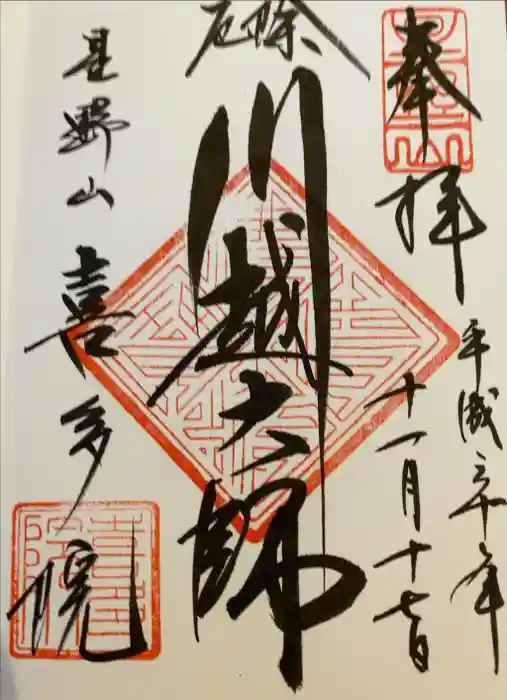 奉拝
平成三十年
十一月十七日
厄除
川越大師
星野山
喜多院